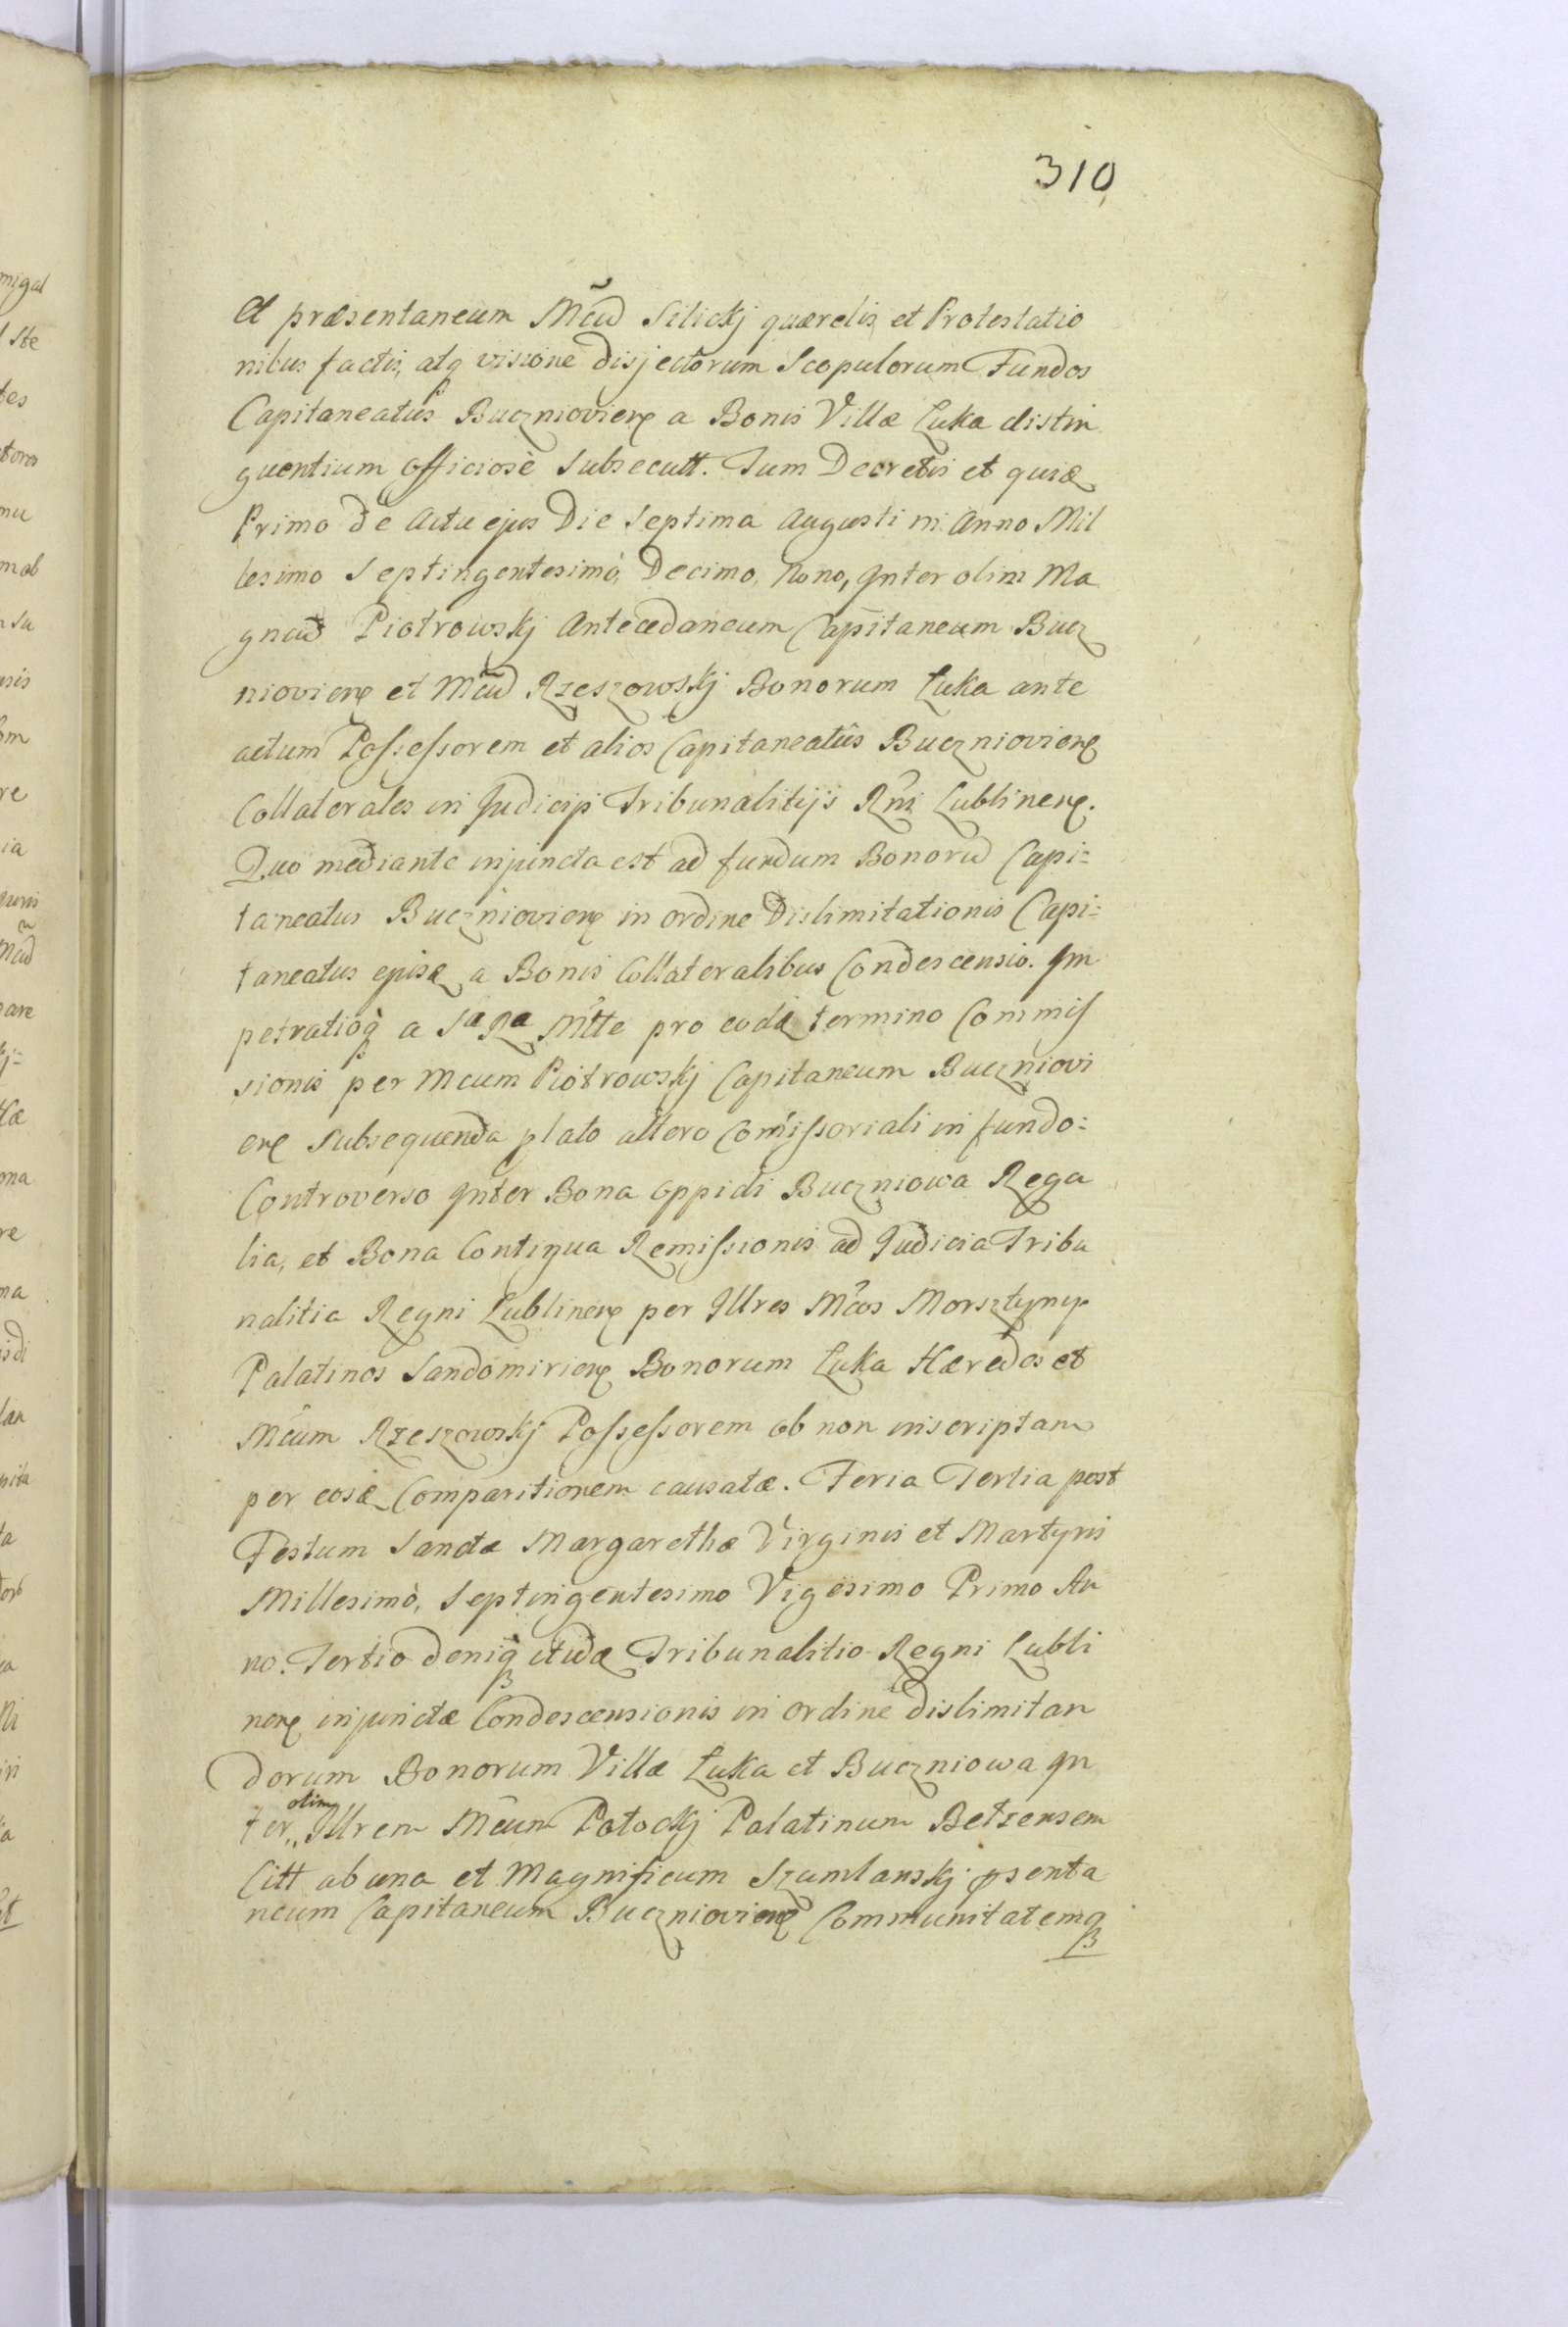 310
Et præsentaneum Mcũ Silickj quærelis et Protestatio
nibus factis, atq visione disjectorum Scopulorum Fundos
Capitaneatûs Buczniovieñ a Bonis Villæ Łuka distin
guentium officiosè subsecutt. Tum Decretis et quidẽ
Primo de Actu ejus Die Septima Augusti in Anno Mil
lesimo Septingentesimò, Decimo, Nono, Inter olim Ma
gncũ Piotrowskj Antecedaneum Capitaneum Bucz
niovieñ et Mcũ Rzeszowskj Bonorum Łuka ante
actum Possessorem et alios Capitaneatûs Buczniovieñ
Collaterales in Judicijs Tribunalitijs Rñi Lublineñ.
Quo mediante injuncta est ad fundum Bonorũ Capi=
taneatus Buczniovieñ in ordine Dislimitationis Capi=
taneatus ejusdẽ a Bonis Collateralibus Condescensio. Im
petratioq̀ a Sa Ra Mtte pro eodẽ termino Commis
sionis per Mcum Piotrowskj Capitaneum Buczniovi
eñ subsequenda plato altero Comissoriali in fundo=
Controverso Inter Bona oppidi Buczniowa Rega
lia, et Bona Contigua Remissionis ad Judicia Tribu
nalitia Regni Lublineñ per Illres Mcos Morsztyny
Palatinos Sandomirieñ Bonorum Łuka Hæredes et
Mcum Rzeszowskj Possessorem ob non inscriptam
per eosdẽ Comparitionem causatæ. Feria Tertia post
Festum Sanctæ Margarethæ Virginis et Martyris
Millesimò, Septingentesimo Vigesimo Primo An
no. Tertio deniq̀ itidẽ Tribunalitio Regni Lubli
neñ injunctæ Condescensionis in ordine dislimitan
dorum Bonorum Villæ Łuka et Buczniowa In
ter,, olim Illrem Mcum Potockj Palatinum Betzensem
Citt ab una et Magnificum Szumlanskj psenta
neum Capitaneum Buczniovieñ Communitatemq